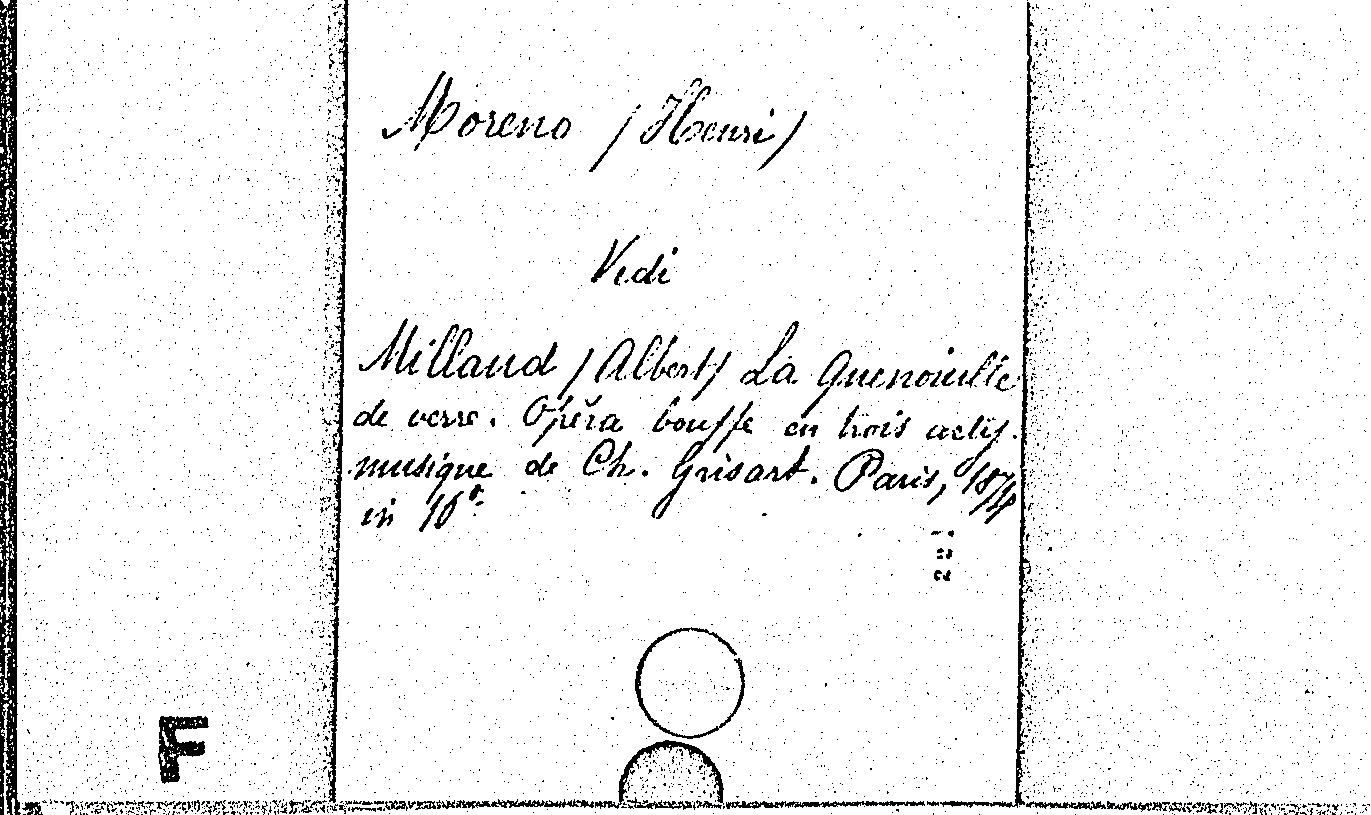 Moreno (Henri)
Vedi
Millaud (Albert) La Quenouille
de verre. Opéra bouffe en trois actes.
musique de Ch. Grisart. Paris, 1874
in 16º.
F